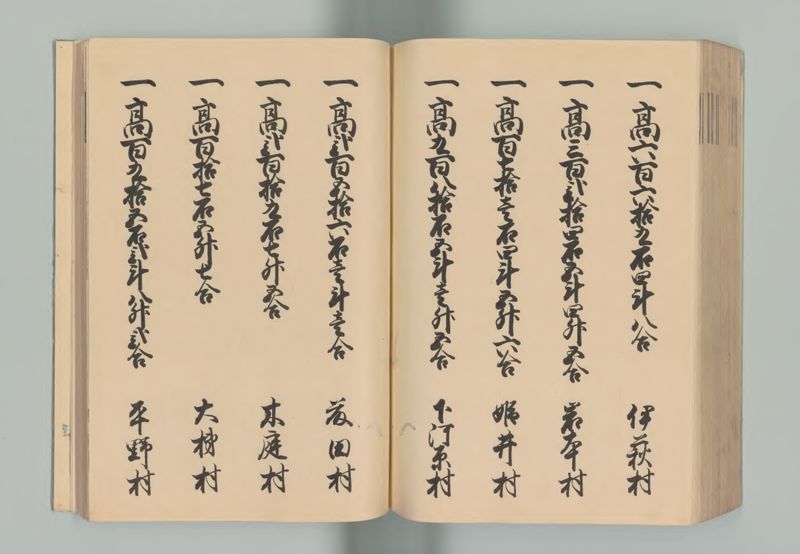 一高六百六拾九石四斗八合 伊萩村
一高三百弐拾四石五斗四升五合 岩本村
一高百七拾壱石四斗五升六合 娵井村
一高九百八拾石五斗壱升五合 下河原村
一高弐百五拾六石壱斗壱合 荻田村
一高弐百拾九石七升五合 木庭村
一高百拾七石五升七合 大樋村
一高百九拾五石弐斗八升弐合 平野村